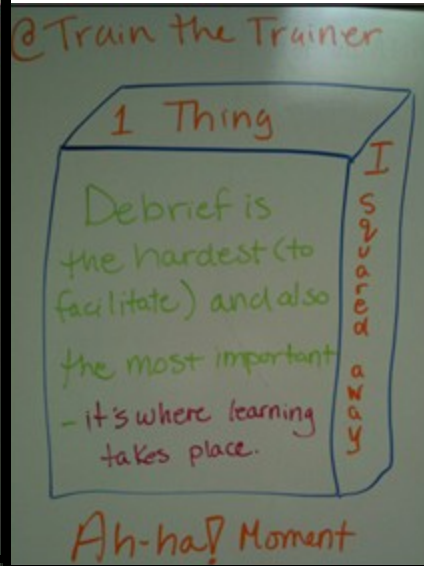 @Train the Trainer
1 Thing
I squared away
Debrief is
the hardest (to
facilitate) and also
the most important
- it's where learning
takes place.
Ah-ha! Moment